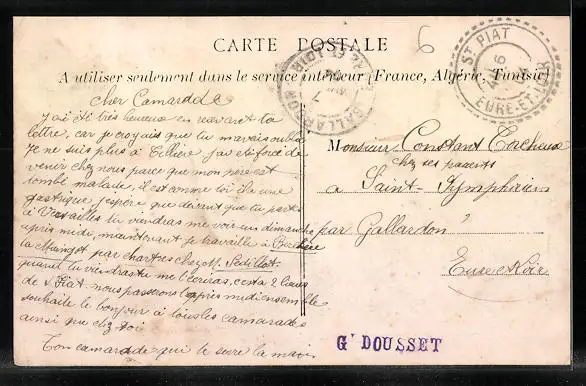 CARTE POSTALE
A utiliser seulement dans le service intérieur (France, Algérie, Tunisie)
6
ST PIAT
EURE-ET-LOIR
GALLARDON
Cher Camarade
J'ai été très heureux en recevant ta
lettre, car je croyais que tu m'avais oublié
Je ne suis plus à j'ai été forcé de
venir chez nous parce que mon père est
tombé malade, il est comme toi il a une
gastrique j'espère que devant que tu partes
à Versailles tu viendras me voir un dimanche
après midi, maintenant je travaille à Berchère
la Maingot par chartres chez M. Sedillot
quand tu viendras tu me l'écriras, c'est à 2 lieues
de St Piat nous passerons l'après midi ensemble
souhaite le bonjour à tous les camarades
ainsi que chez toi
Ton camarade qui te serre la main
Monsieur Constant
chez ses parents
à Saint-Symphorien
par Gallardon
Eure et Loir
Gr DOUSSET